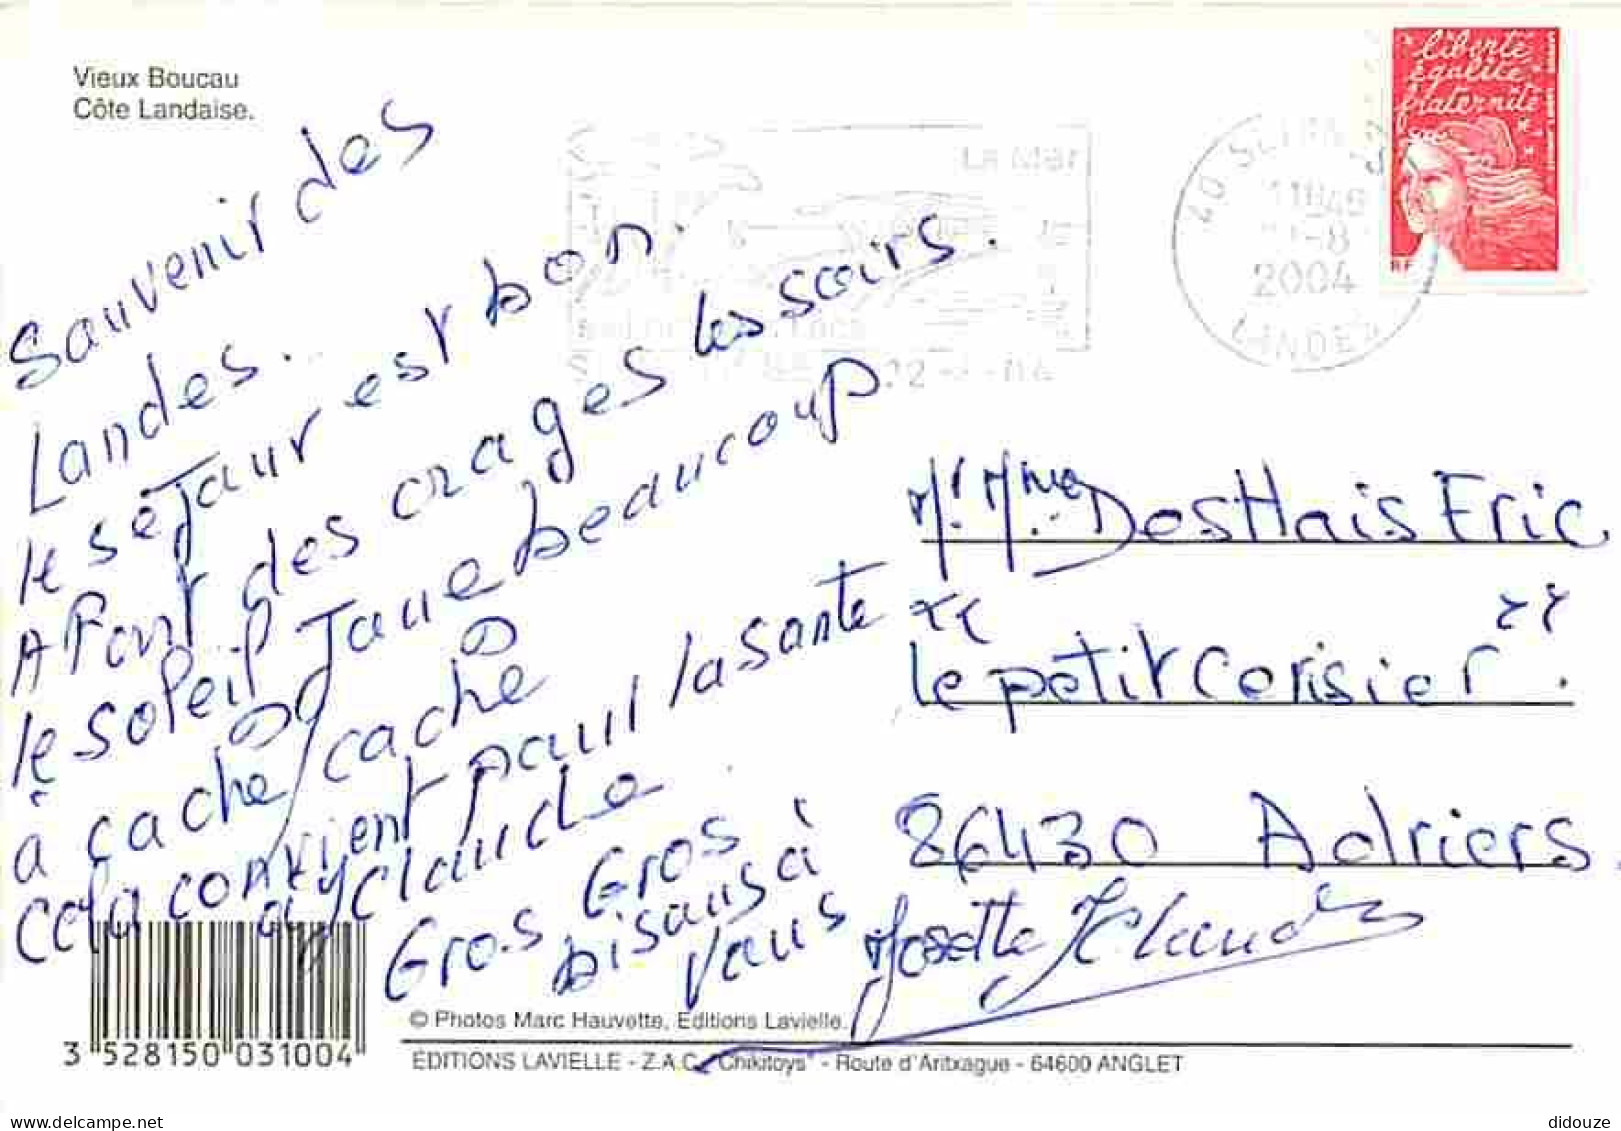 Vieux Boucau
Côte Landaise.
Sauvenir des
Landes.
le séjaur est bon.
A Part des orages les soirs.
le soleil Jaue beaucoup
à cache cache
Cela convient paur la santé
a J Claude
Gros. Gros
bisaus à
vaus
Josette JClaude
liberté
égalité
fraternité
RF
La Mer
11H45
-8
2004
LANDES
Mr. Mme DesHais Eric
“ le petit Cerisier ”.
86430 Adriers
3 528150 031004
© Photos Marc Hauvette, Editions Lavielle.
ÉDITIONS LAVIELLE - Z.A.C. "Chikitoys" - Route d'Aritxague - 64600 ANGLET
delcampe.net
didouze